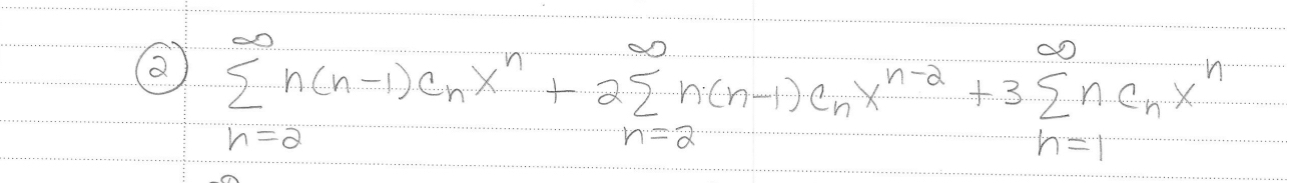 ② $\sum_{n=2}^{\infty} n(n-1)c_n x^n + 2\sum_{n=2}^{\infty} n(n-1)c_n x^{n-2} + 3\sum_{n=1}^{\infty} n c_n x^n$